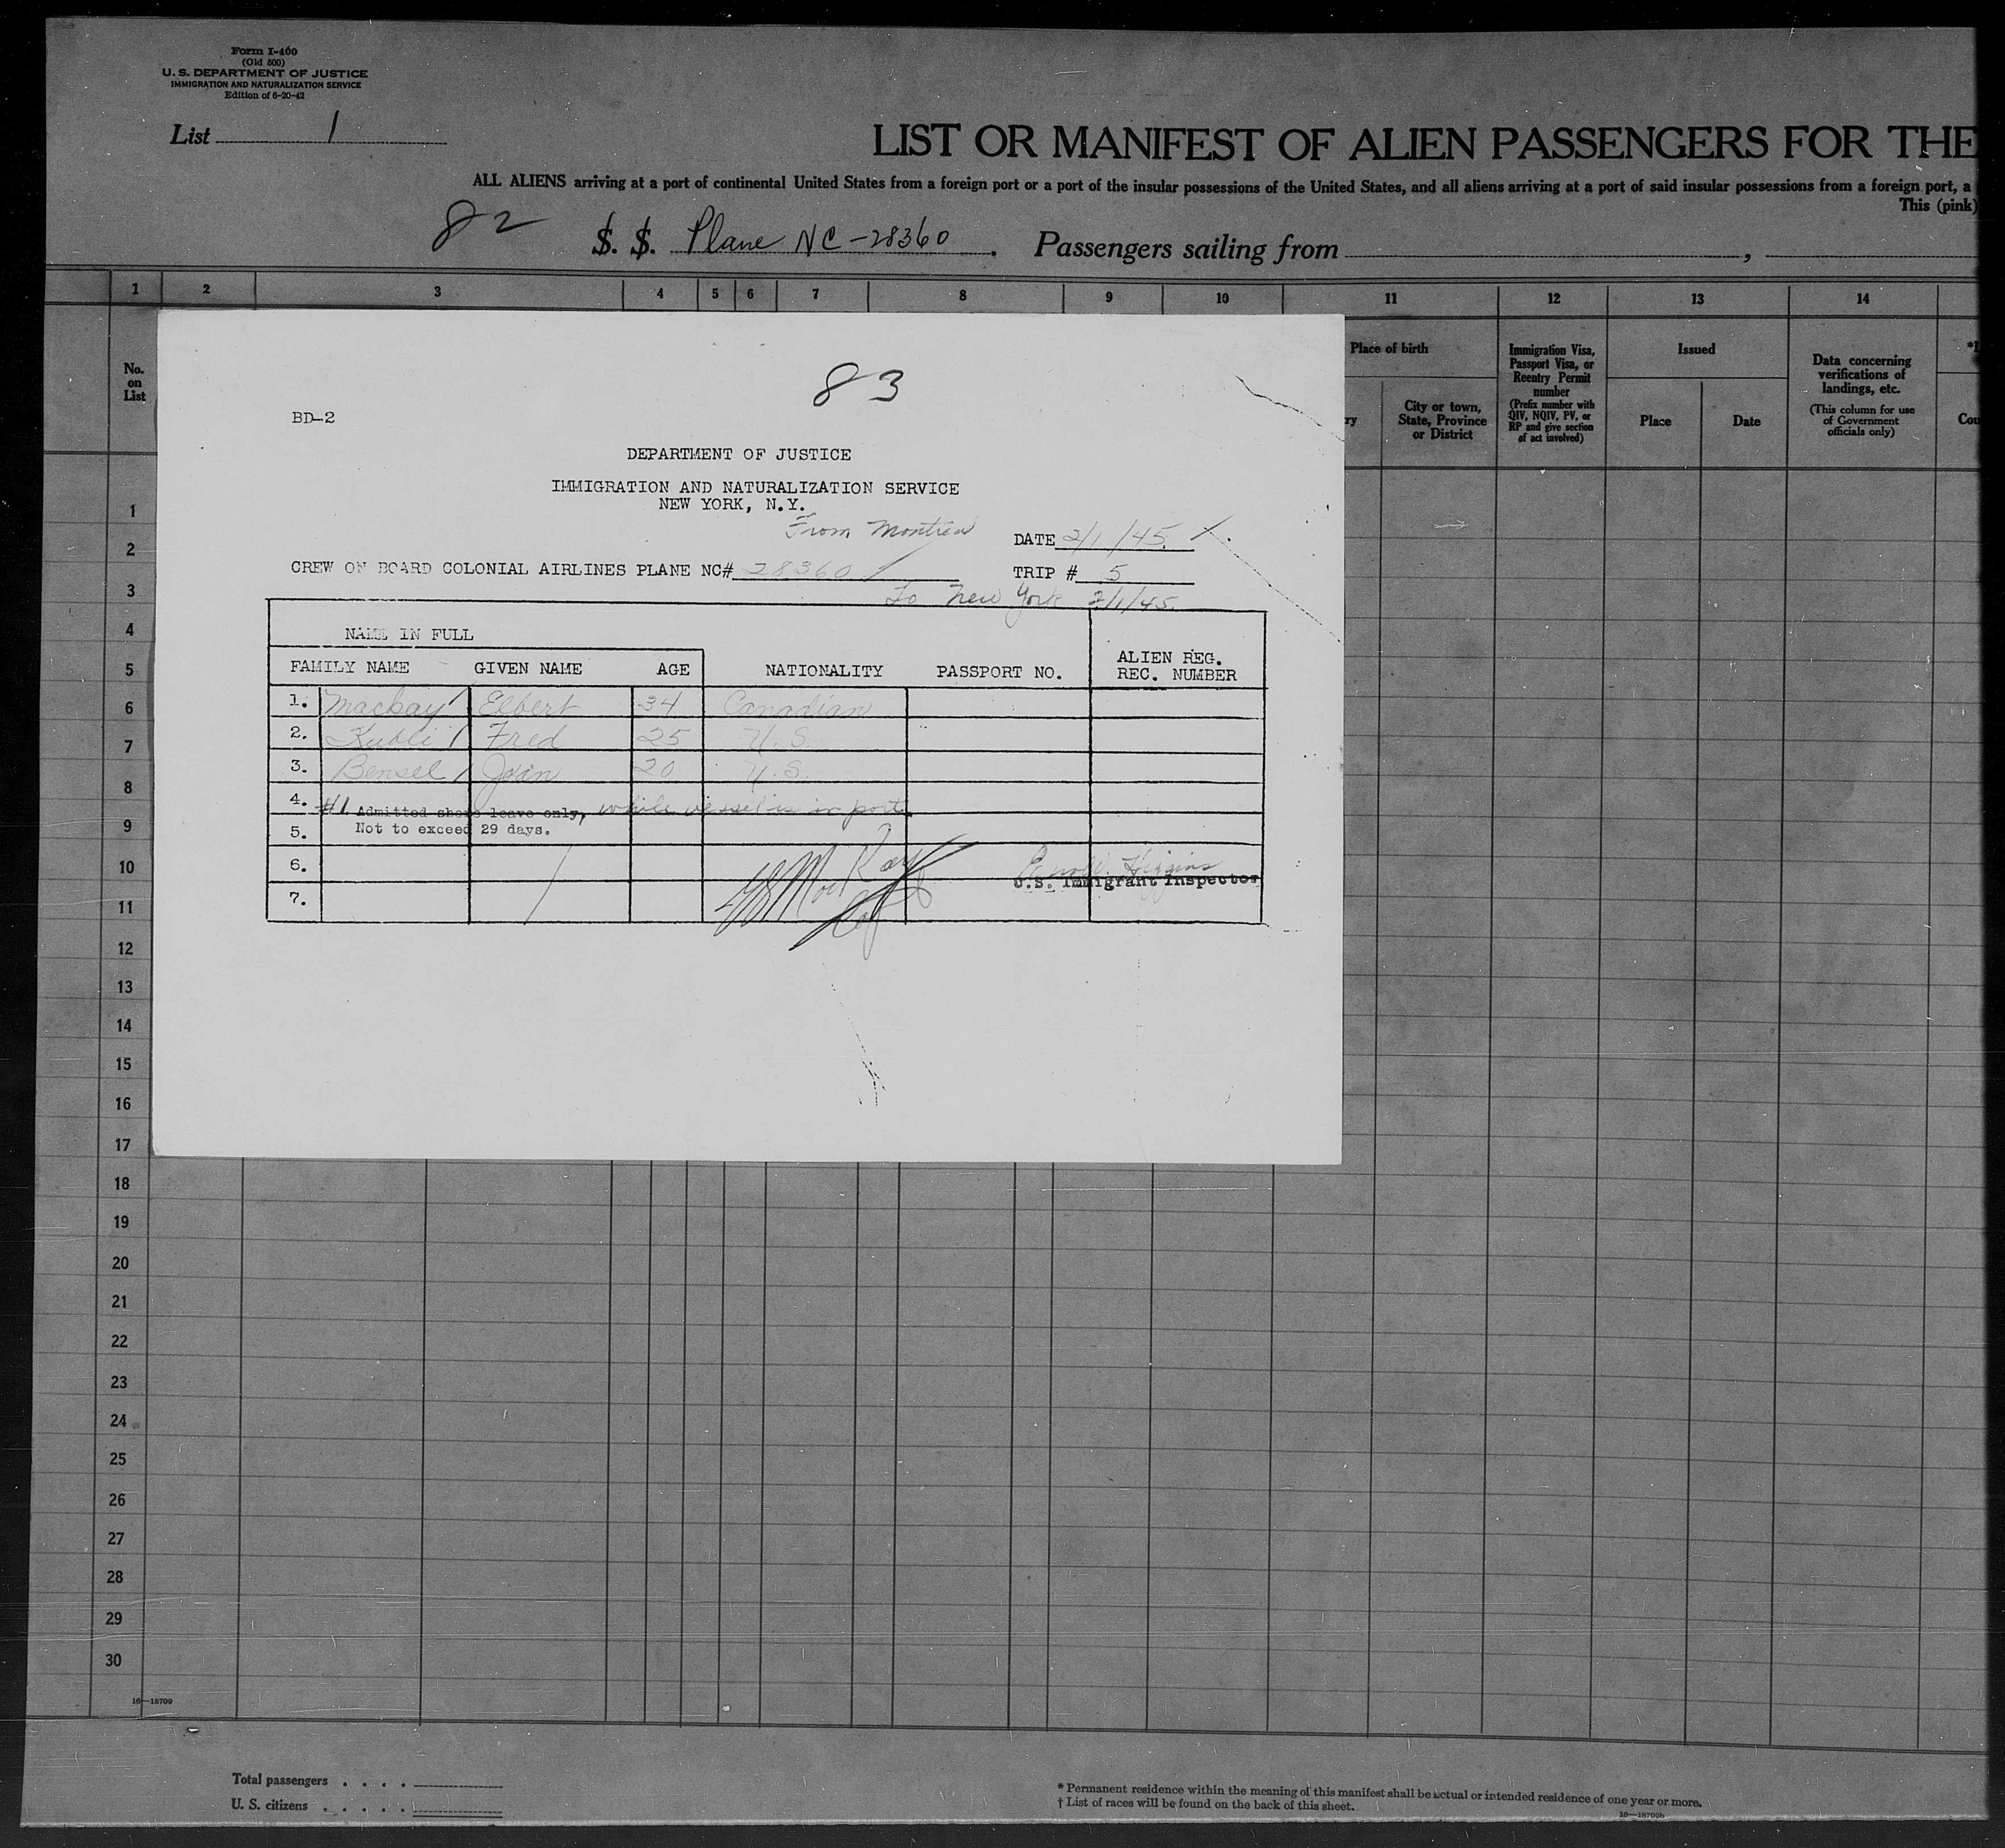 Form I-460
(Old 500)
U. S. DEPARTMENT OF JUSTICE
IMMIGRATION AND NATURALIZATION SERVICE
Edition of 6-20-42
List 1
LIST OR MANIFEST OF ALIEN PASSENGERS FOR THE
ALL ALIENS arriving at a port of continental United States from a foreign port or a port of the insular possessions of the United States, and all aliens arriving at a port of said insular possessions from a foreign port, a
This (pink)
82 S. S. Plane NC-28360. Passengers sailing from ,
1 2 3 4 5 6 7 8 9 10 11 12 13 14
No.
on
List
Place of birth
City or town,
State, Province
or District
Immigration Visa,
Passport Visa, or
Reentry Permit
number
(Prefix number with
QIV, NQIV, PV, or
RP and give section
of act involved)
Issued
Place Date
Data concerning
verifications of
landings, etc.
(This column for use
of Government
officials only)
83
BD-2
DEPARTMENT OF JUSTICE
IMMIGRATION AND NATURALIZATION SERVICE
NEW YORK, N.Y.
From Montreal
DATE 2/1/45
CREW ON BOARD COLONIAL AIRLINES PLANE NC# 28360 TRIP # 5
To New York 2/1/45
NAME IN FULL
FAMILY NAME GIVEN NAME AGE NATIONALITY PASSPORT NO. ALIEN REG.
REC. NUMBER
1. Mackay Elbert 34 Canadian
2. Kubli Fred 25 U.S.
3. Bensel 20 U.S.
4. #1 Admitted shore leave only, while vessel is in port.
5. Not to exceed 29 days.
6. Higgins
U.S. Immigrant Inspector
7.
1
2
3
4
5
6
7
8
9
10
11
12
13
14
15
16
17
18
19
20
21
22
23
24
25
26
27
28
29
30
16—18709
Total passengers . . . .
U. S. citizens . . . . .
* Permanent residence within the meaning of this manifest shall be actual or intended residence of one year or more.
† List of races will be found on the back of this sheet.
16—18709b